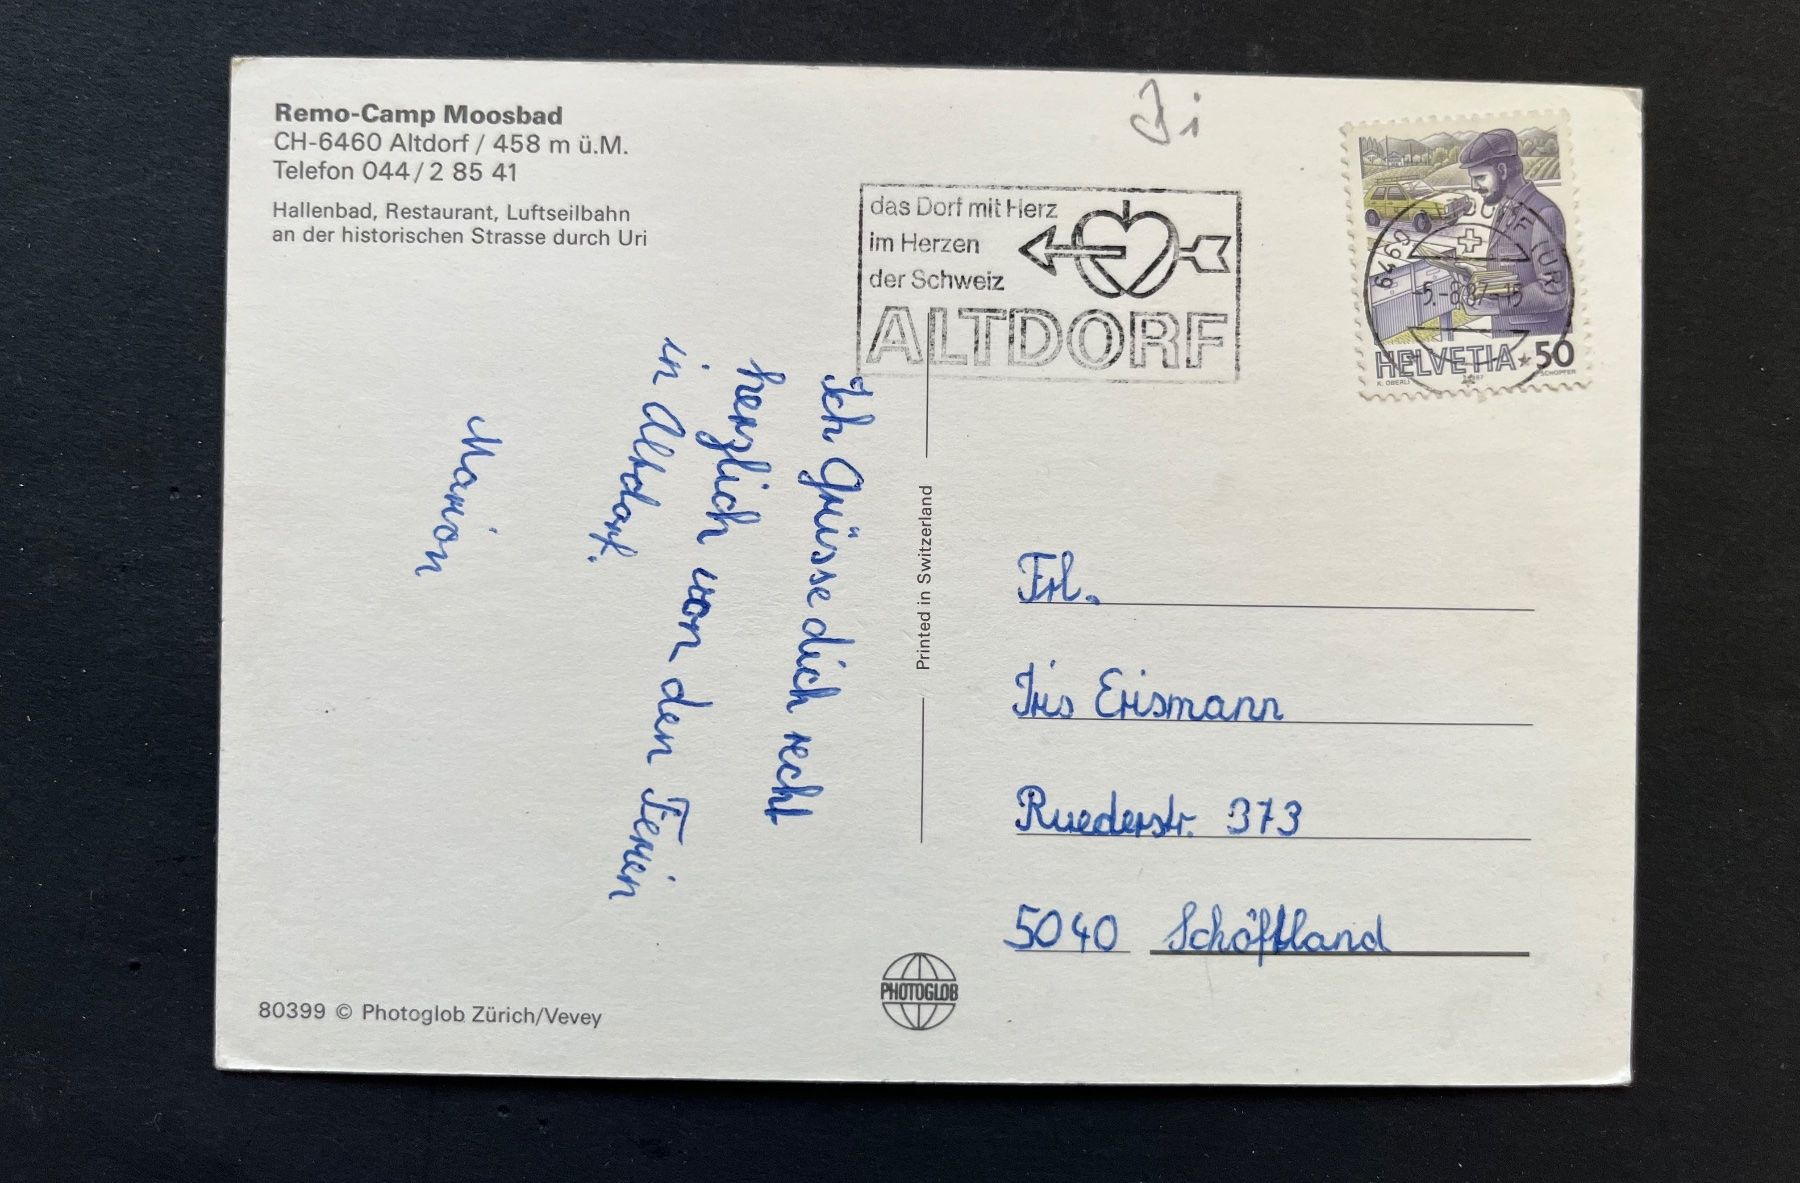 Remo-Camp Moosbad
CH-6460 Altdorf / 458 m ü.M.
Telefon 044 / 2 85 41
Hallenbad, Restaurant, Luftseilbahn
an der historischen Strasse durch Uri
das Dorf mit Herz
im Herzen
der Schweiz
ALTDORF
-5.-8.87-15
HELVETIA 50
K. OBERLI
1987
SCHÖPFER
Ich grüsse dich recht
herzlich von den Ferien
in Altdorf.
Marion
Printed in Switzerland
Frl.
Iris Erismann
Ruederstr. 373
5040 Schöftland
PHOTOGLOB
80399 © Photoglob Zürich/Vevey